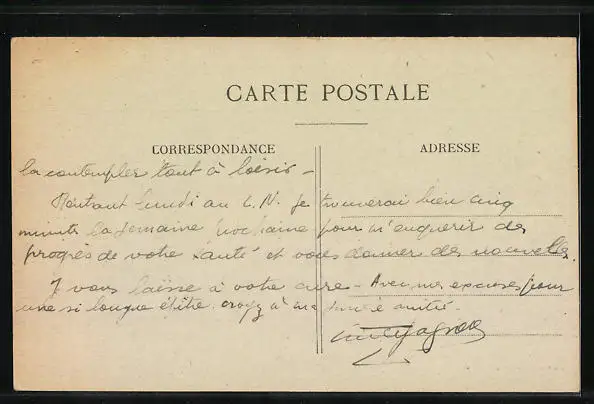 CARTE POSTALE
CORRESPONDANCE
ADRESSE
la contempler tout à loisir –
Rentrant lundi au C.N. je trouverai bien cinq
minutes la semaine prochaine pour m'enquérir des
progrès de votre santé et vous donner des nouvelles.
Je vous laisse à votre cure – Avec mes excuses pour
une si longue épître croyez à ma amitié.